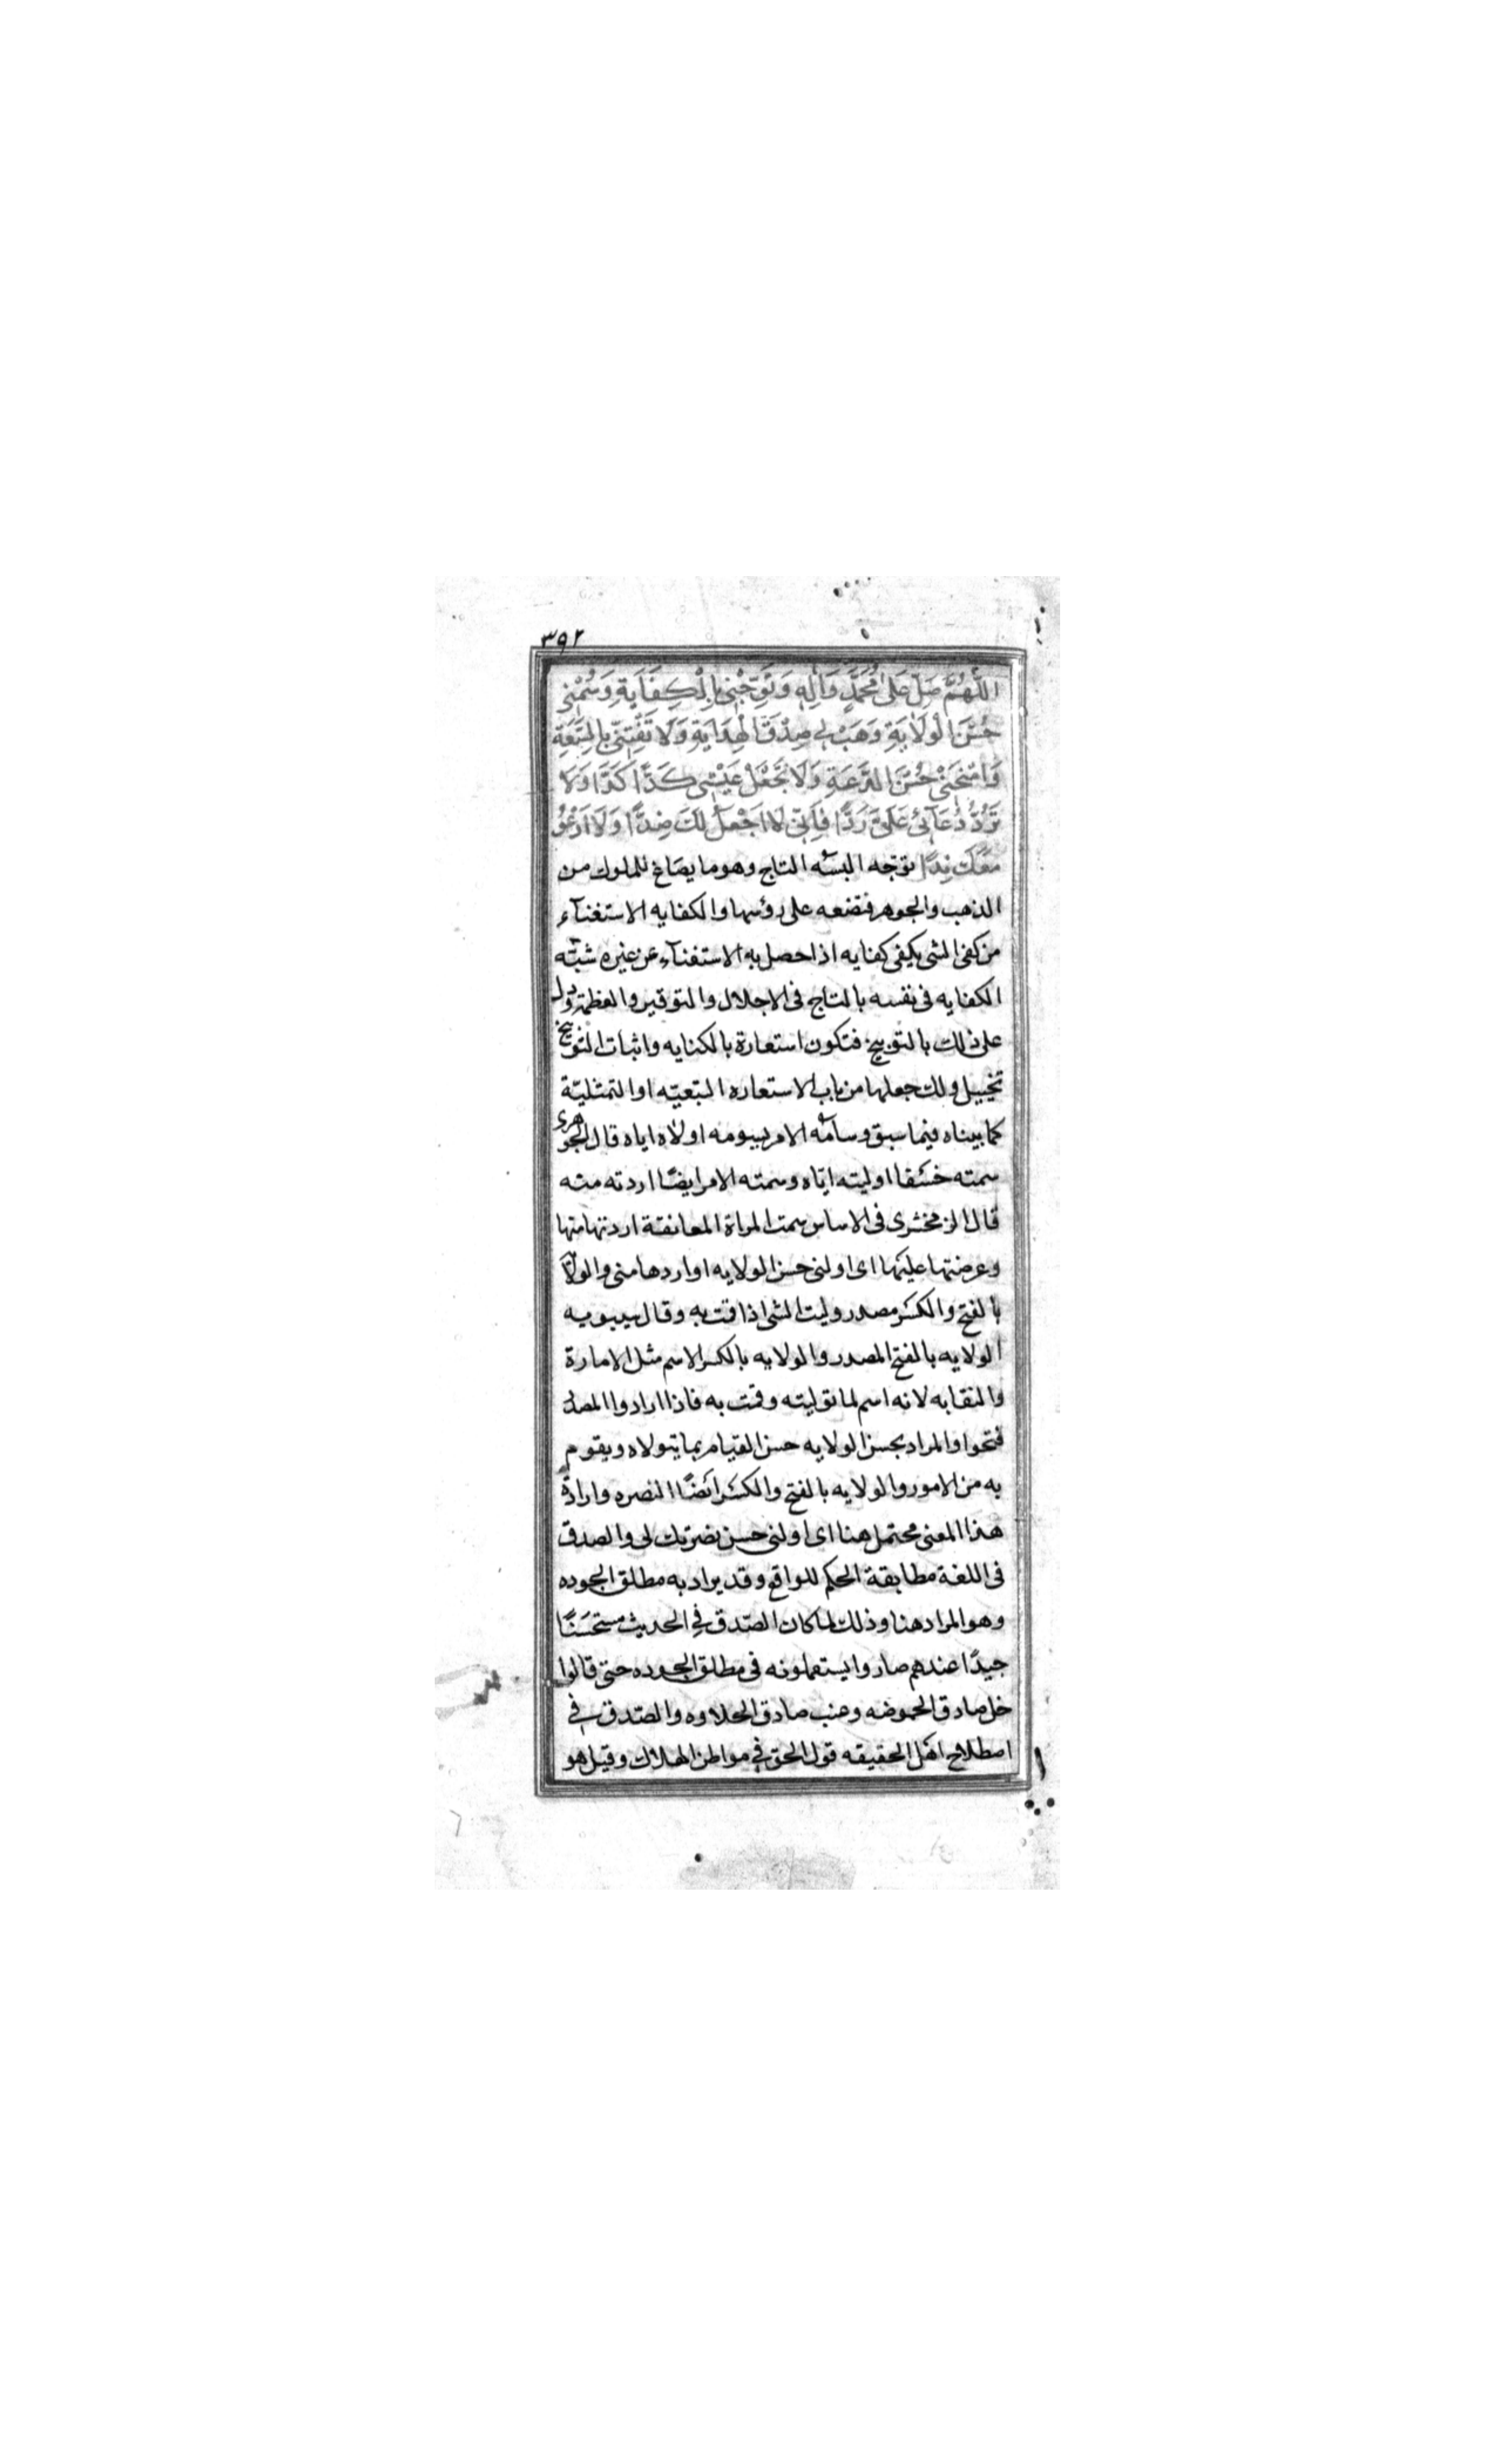 ٣٩٢
اللَّهُمَّ صَلِّ عَلى مُحَمَّدٍ وَاٰلِهِ وَتَوِّجْنِي بِالْكِفَايَةِ وَسُمْنِي
حُسْنَ الْوِلَايَةِ وَهَبْ لِي صِدْقَ الْهِدَايَةِ وَلَا تَفْتِنِّي بِالسَّعَةِ
وَامْنَحْنِي حُسْنَ الدَّعَةِ وَلَا تَجْعَلْ عَيْشِي كَدًّا كَدًّا وَلَا
تَرُدَّ دُعَآئِي عَلَيَّ رَدًّا فَاِنِّي لَا اَجْعَلُ لَكَ ضِدًّا وَلَا اَدْعُو
مَعَكَ نِدًّا توّجه البسه التاج وهو ما يصاغ للملوك من
الذهب والجوهر فتضعه على رؤسها والكفايه الاستغنآء
من كفى الشى يكفى كفايه اذا حصل به الاستغنآء عن غيره شبّه
الكفايه فى نفسه بالتاج فى الاجلال والتوقير والعظمة ودل
على ذلك بالتويج فتكون استعارة بالكنايه واثبات التويج
تخييل ولك جعلها من باب الاستعاره التبعيّه او التمثليّة
كما بيناه فيما سبق وسامه الامر يسومه اولاه اياه قال الجوهرى
سمته خسفا اوليته ايّاه وسمته الامر ايضًا اردته منه
قال الزمخشرى فى الاساس سمت المراة المعانقة اردتها منها
وعرضتها عليها اى اولنى حسن الولايه او اردها منى والولاية
بالفتح والكسر مصدر وليت الشى اذا قمت به وقال سيبويه
الولايه بالفتح المصدر والولايه بالكسر الاسم مثل الامارة
والنقابه لانه اسم لما توليته وقمت به فاذا ارادوا المصدر
فتحوا والمراد بحسن الولايه حسن القيام بما يتولاه ويقوم
به من الامور والولايه بالفتح والكسر ايضًا النصره وارادة
هذا المعنى محتمل هنا اى اولنى حسن نصرتك لى والصدق
فى اللغة مطابقة الحكم للواقع وقد يراد به مطلق الجوده
وهو المراد هنا وذلك لما كان الصّدق فى الحديث مستحسَنًا
جيدًا عندهم صاروا يستعملونه فى مطلق الجوده حتى قالوا
خل صادق الحموضه وعنب صادق الحلاوه والصّدق فى
اصطلاح اهل الحقيقه قول الحق فى مواطن الهلاك وقيل هو